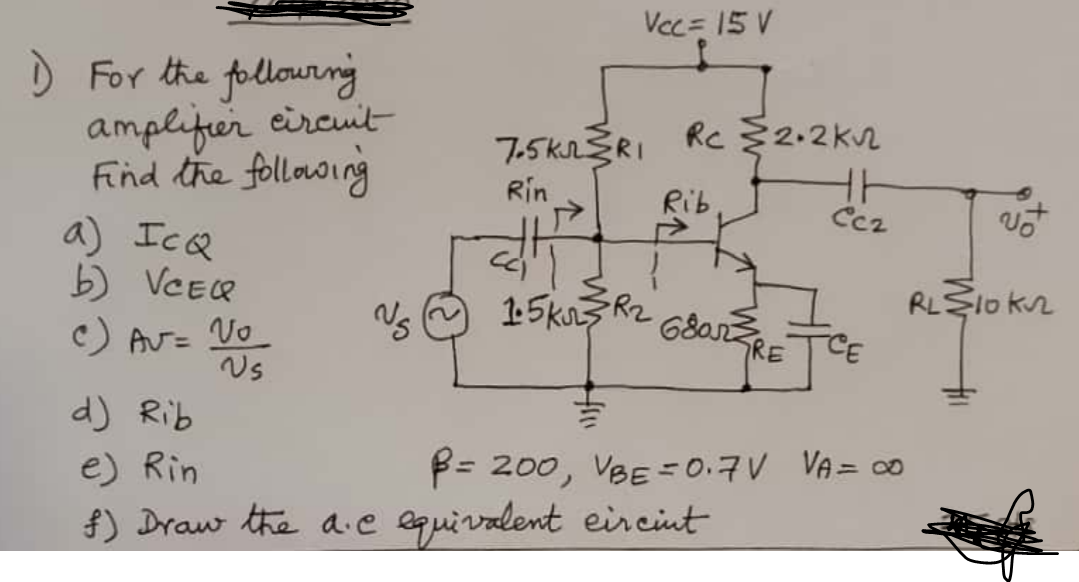 1) For the following
amplifier circuit
Find the following
a) ICQ
b) VCEQ
c) Av = Vo
Vs
d) Rib
e) Rin
f) Draw the a.c equivalent circiut
Vcc = 15 V
7.5kΩ R1
Rc 2.2kΩ
Rin
Rib
Cc1
Cc2
vo+
vs
1.5kΩ R2
680Ω
RE
CE
RL 10 kΩ
β = 200, VBE = 0.7V VA = ∞